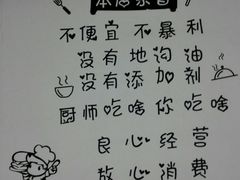 本店承旨
不便宜不暴利
没有地沟油
没有添加剂
厨师吃啥你吃啥
良心经营
放心消费